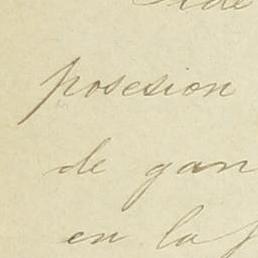 posesion
de gan
en la